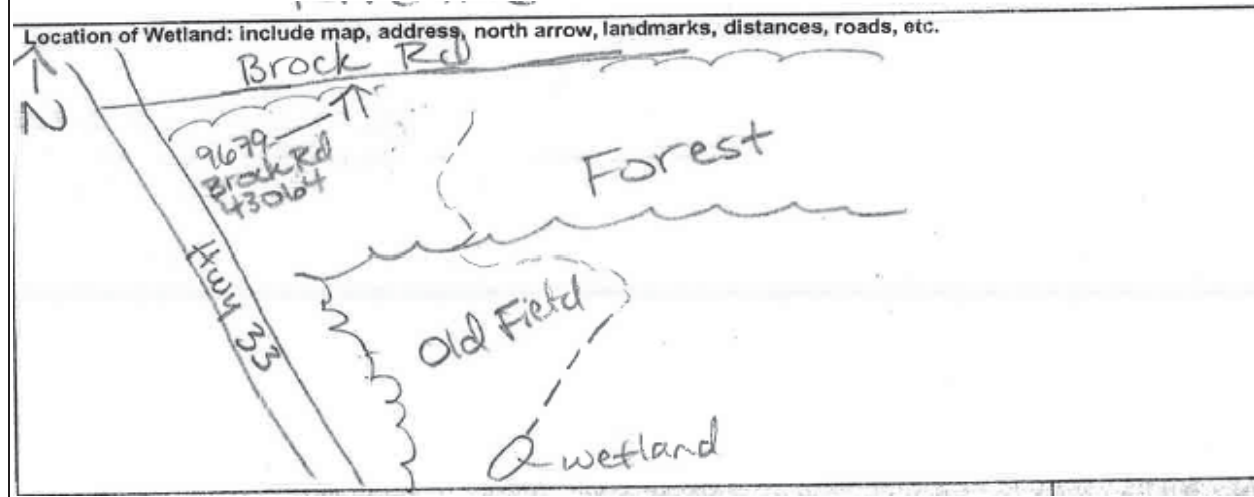 Location of Wetland: include map, address, north arrow, landmarks, distances, roads, etc.
Brock Rd
N
9679
Brock Rd
43064
Forest
Hwy 33
Old Field
wetland